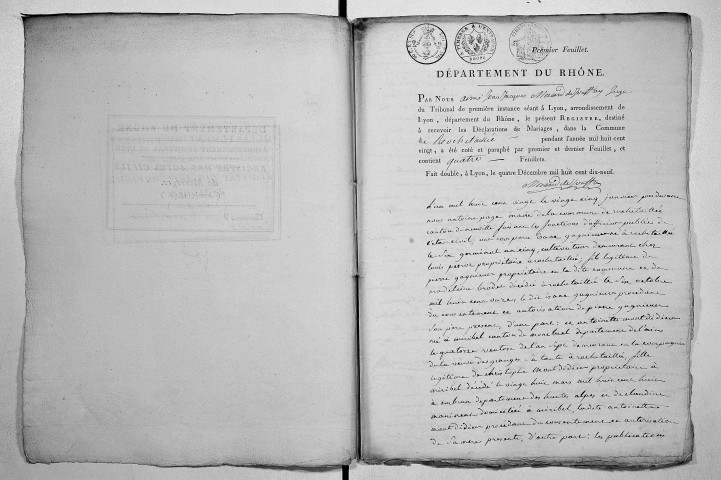 Premier Feuillet.
DÉPARTEMENT DU RHÔNE.
PAR NOUS aimé Jean Jacques Juge
du Tribunal de première instance séant à Lyon, arrondissement de
Lyon, département du Rhône, le présent REGISTRE, destiné
à recevoir les Déclarations de Mariages, dans la Commune
de Rochetaillée pendant l'année mil huit cent
vingt, a été coté et paraphé par premier et dernier Feuillet, et
contient quatre Feuillets.
Fait double, à Lyon, le quatre Décembre mil huit cent dix-neuf.
L'an mil huit cent vingt le vingt cinq janvier pardevant
nous antoine page maire de la commune de rochetaillée
canton de neuville faisant les fonctions d'officier public de
l'état civil, est comparu isaac gagnieur né à rochetaillée
le six germinal an cinq, cultivateur demeurant chez
louis perrot propriétaire à rochetaillée, fils légitime de
pierre gagnieur propriétaire en la dite commune et de
madeleine brodet décédée à rochetaillée le six octobre
mil huit cent onze, le dit isaac gagnieur procédant
du consentement et autorisation de pierre gagnieur
son père présent, d'une part: et antoinette mont didier
né à miribel canton de montluel département de l'ains
le quatorze ventose de l'an sept demeurant en la compagnie
de la veuve des granges sa tante à rochetaillée, fille
légitime de christophe mont didier propriétaire à
miribel décédé le vingt huit mars mil huit cent huit
à embrun département des hautes alpes et de claudine
maintenant domiciliée à miribel, ladite antoinette
mont didier procédant du consentement et autorisation
de sa mère présente, d'autre part: les publications